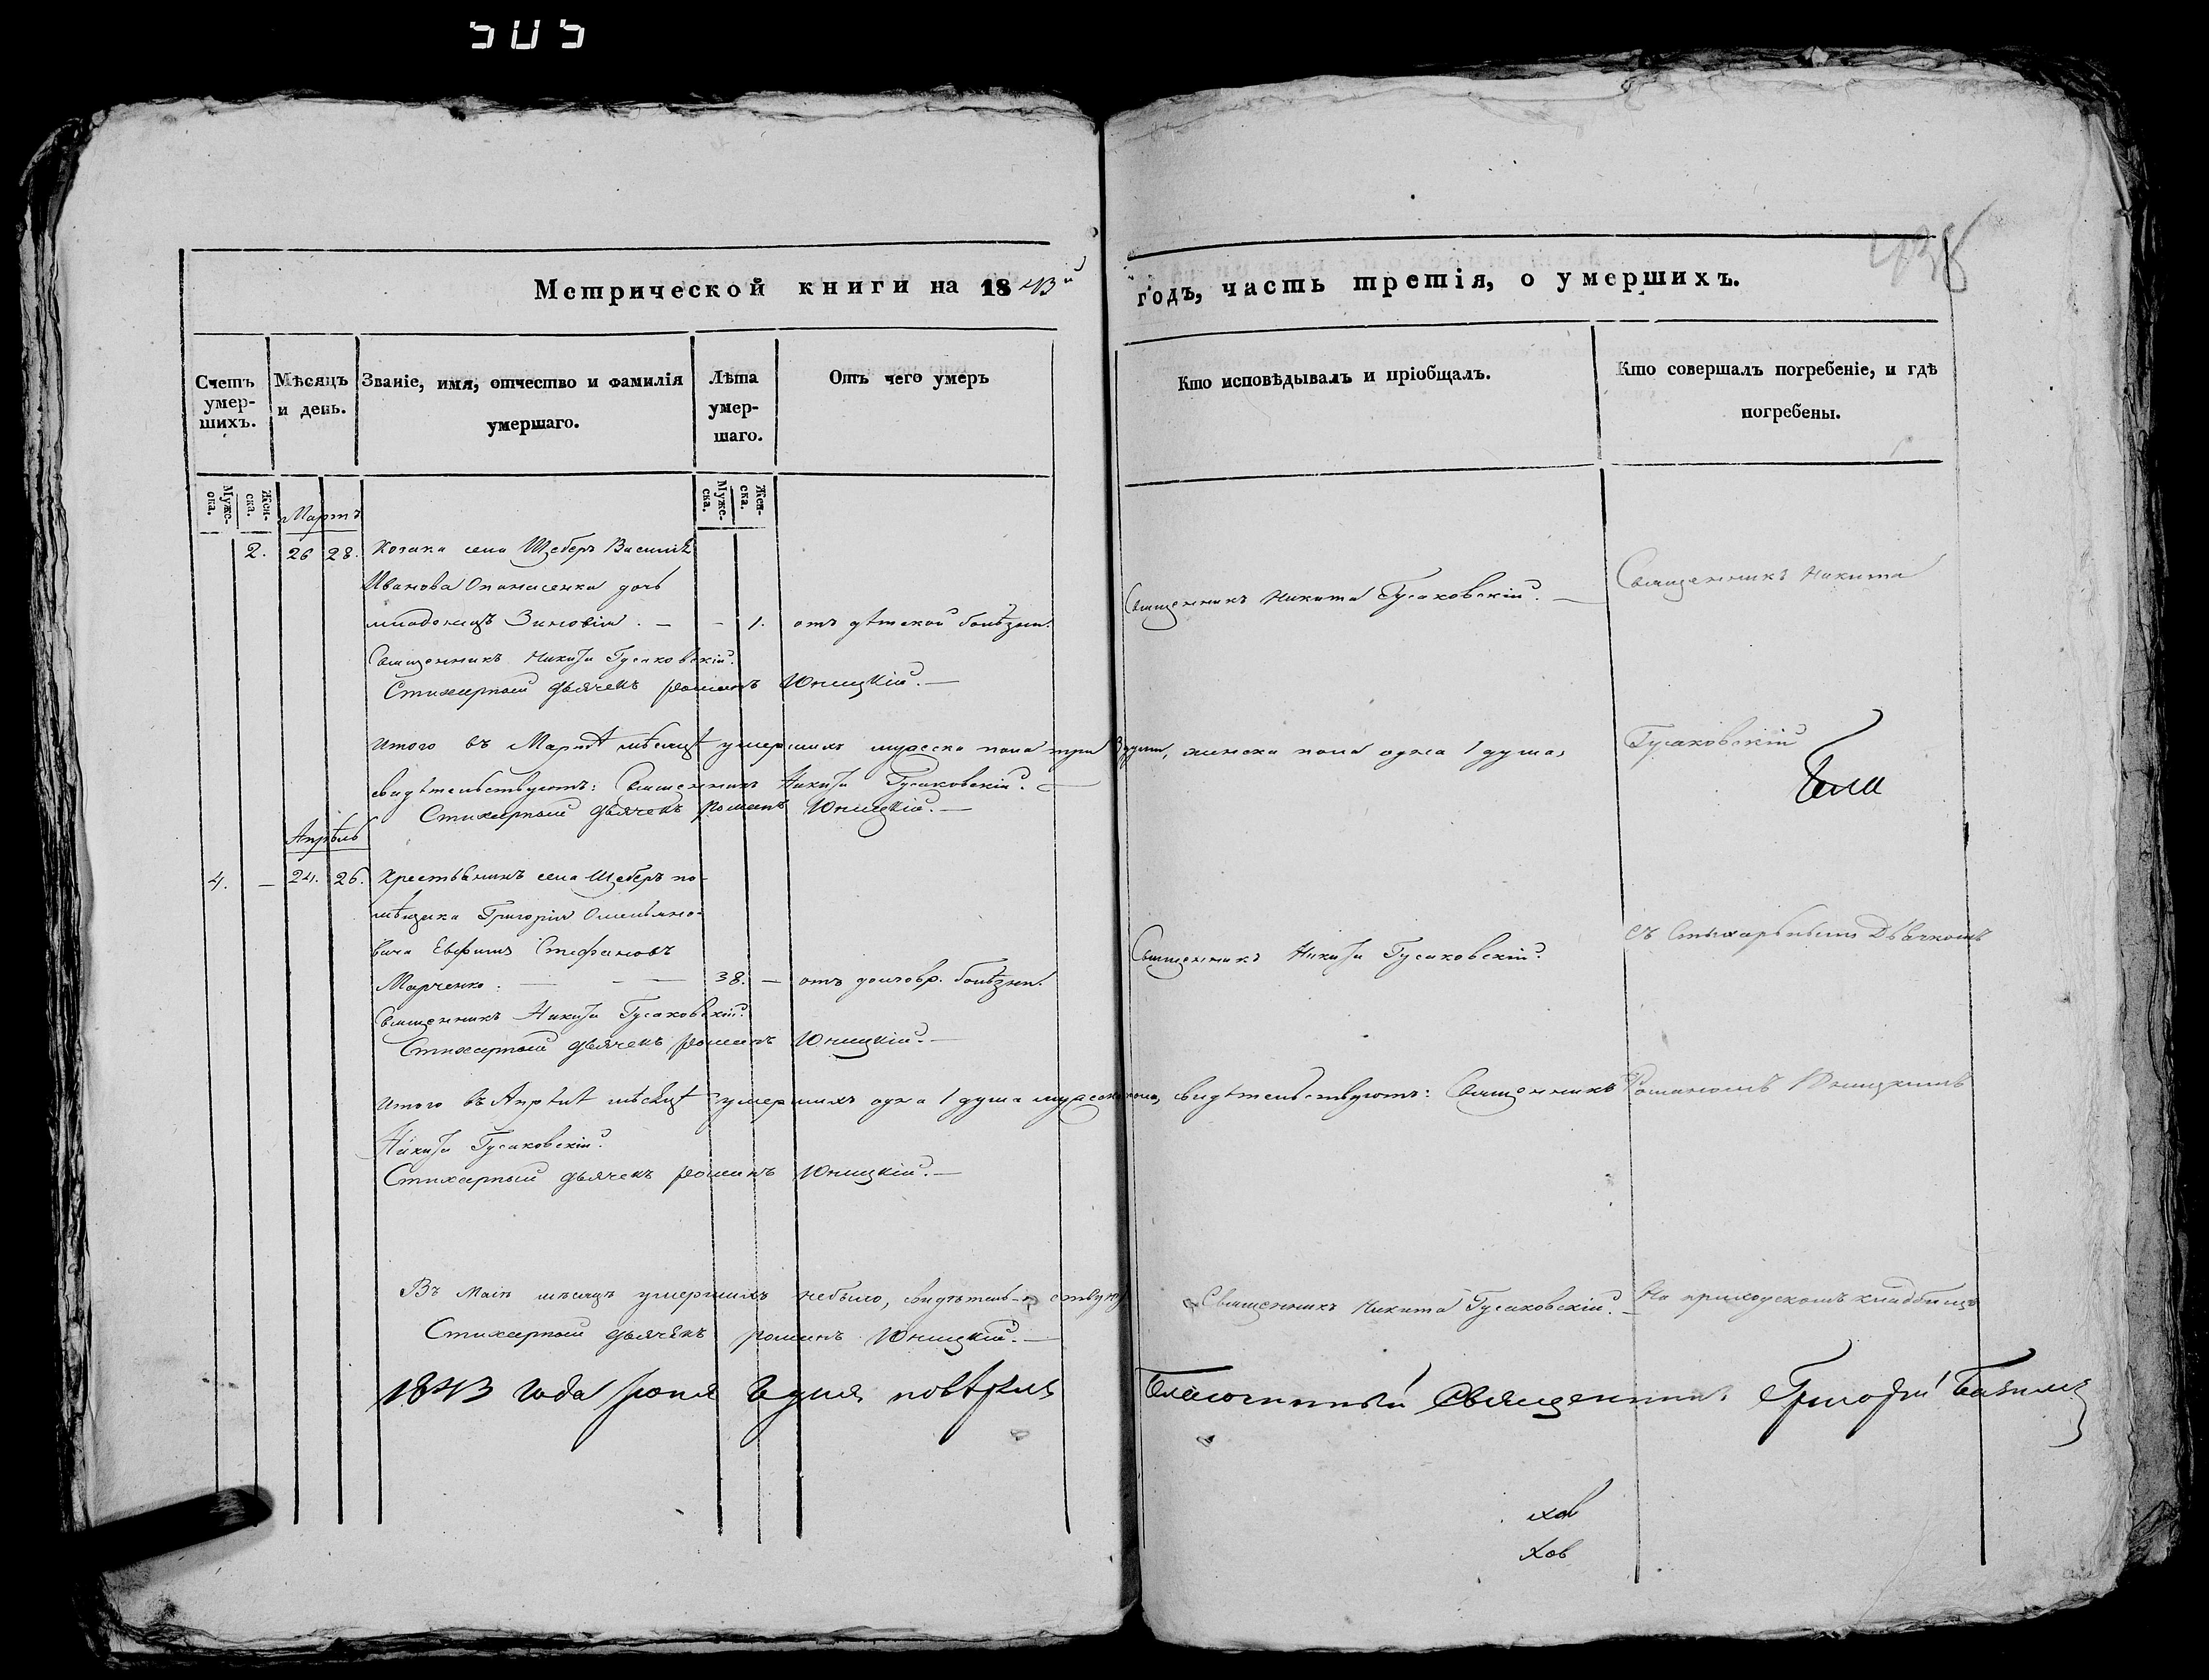 505
438
Метрической книги на 1843й
годъ, часть третія, о умершихъ.
Счетъ умер-шихъ.
Мѣсяцъ и день.
Званіе, имя, отчество и фамилія умершаго.
Лѣта умер-шаго.
Отъ чего умеръ
Кто исповѣдывалъ и пріобщалъ.
Кто совершалъ погребеніе, и гдѣ погребены.
Муже-ска.
Жен-ска.
Муже-ска.
Жен-ска.
Мартъ
2. 26 28. Козака села Щебер Василія
Иванова Опанасенка дочь
младенецъ Зиновія. — — 1. отъ дѣтской болѣзни.
Священникъ Никита Гусаковскій. —
Священникъ Никита
Священникъ Никита Гусаковскій.
Стихарный дьячекъ Романъ Юницкій. —
Итого въ Мартѣ мѣсяцѣ умершихъ мужеска пола три 3 души, женска пола одна 1 душа,
Гусаковскій
свидѣтельствуютъ: Священникъ Никита Гусаковскій. —
Стихарный дьячекъ Романъ Юницкій. —
Апрѣль
4. — 24. 26. Крестьянинъ села Щеберъ по-
мѣщика Григорія Омельяно-
вича Евфимъ Стефановъ
Марченко. — — — 38. — отъ долговр. болѣзни.
Священникъ Никита Гусаковскій.
съ Стыхарьнымъ Дьячкомъ
Священникъ Никита Гусаковскій.
Стихарный дьячекъ Романъ Юницкій. —
Итого въ Апрѣлѣ мѣсяцѣ умершихъ одна 1 душа мужеска пола, свидѣтельствуютъ: Священникъ
Романомъ Юницкимъ
Никита Гусаковскій.
Стихарный дьячекъ Романъ Юницкій. —
Въ Маіѣ мѣсяцѣ умершихъ небыло, свидѣтель-ствую
Священникъ Никита Гусаковскій. —
На приходскомъ кладбищѣ
Стихарный дьячекъ Романъ Юницкій. —
1843 года Іюня дня повѣрялъ Благочинный Священникъ Григорій